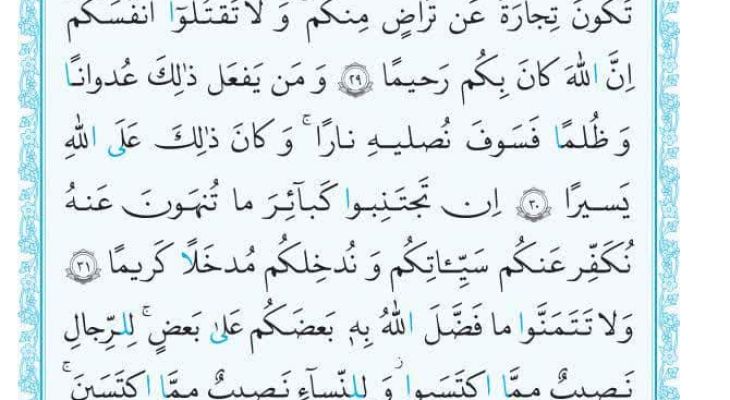 تَكُونَ تِجارَةً عَن تَراضٍ مِنكُم ۚ وَ لا تَقتُلوٓا اَنفُسَكُم
اِنَّ اللّٰهَ كانَ بِكُم رَحيمًا ﴿٢٩﴾ وَ مَن يَفعَل ذٰلِكَ عُدوانًا
وَ ظُلمًا فَسَوفَ نُصليهِ نارًا ۚ وَ كانَ ذٰلِكَ عَلَى اللّٰهِ
يَسيرًا ﴿٣٠﴾ اِن تَجتَنِبوا كَبآئِرَ ما تُنهَونَ عَنهُ
نُكَفِّر عَنكُم سَيِّـٔاتِكُم وَ نُدخِلكُم مُدخَلًا كَريمًا ﴿٣١﴾
وَلا تَتَمَنَّوا ما فَضَّلَ اللّٰهُ بِهٖ بَعضَكُم عَلىٰ بَعضٍ ۚ لِلرِّجالِ
نَصيبٌ مِمَّا اكتَسَبوا ۖ وَ لِلنِّسآءِ نَصيبٌ مِمَّا اكتَسَبنَ ۚ